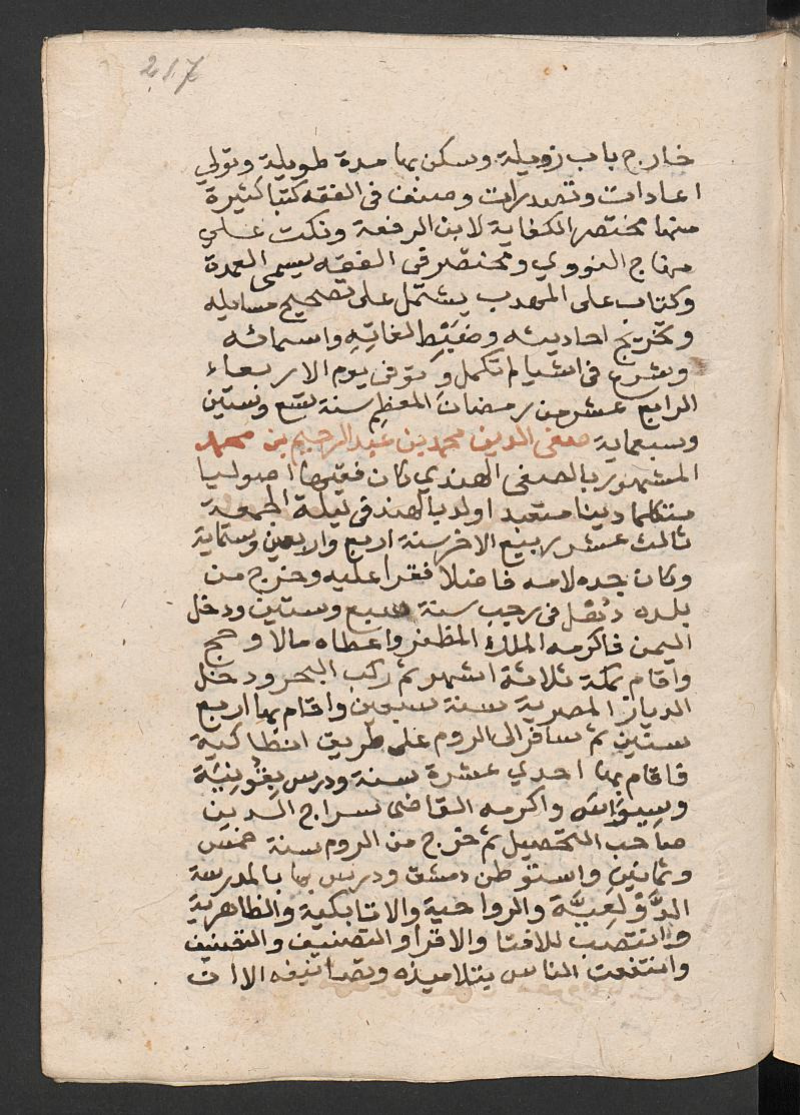 217
خارج باب زويلة وسكن بها مدة طويلة وتولي
اعادات وتصديرات وصنف في الفقه كتبا كثيرة
منها مختصر الكفاية لابن الرفعة ونكت علي
منهاج النووي ومختصر في الفقه يسمى العمدة
وكتاب على المهذب يشتمل على تصحيح مسايله
وتخريج احاديثه وضَبْط لغاتِهِ واسمائه
وشرع في اشيا لم تكمل وتوفى يوم الاربعاء
الرابع عشر من رمضان المعظم سنة تسع وستين
وسبعماية صفى الدين محمد بن عبد الرحيم بن محمد
المشهور بالصفى الهندي كان فقيها اصوليا
متكلما دينا متعبدا ولد بالهند في ليلة الجمعة
ثالث عشر ربيع الاخر سنة اربع واربعين وستماية
وكان جده لامه فاضلا فقرا عليه وخرج من
بلده دهلى في رجب سنة سبع وستين ودخل
اليمن فاكرمه الملك المظفر واعطاه مالا وحج
واقام بمكة ثلاثة اشهر ثم ركب البحر ودخل
الديار المصرية سنة سبعين واقام بها اربع
سنين ثم سافر الى الروم على طريق انطاكية
فاقام بها احدي عشرة سنة ودرس بقونية
وسيواس واكرمه القاضى سراج الدين
صاحب التحصيل ثم خرج من الروم سنة خمس
وثمانين واستوطن دمشق ودرس بها بالمدرسة
الدَّوْلَعِيَّة والرواحية والاتابكية والظاهرية
وانتصب للافتا والاقرا والتصنيف والتصنيف
وانتفعت الناس بتلاميذه وتصانيفه الا ان